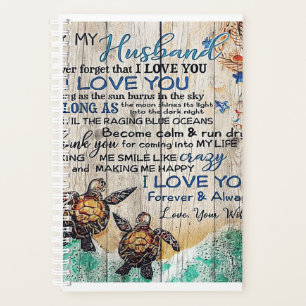 MY Husband
ver forget that I LOVE YOU
I LOVE YOU
ng as the sun burns in the sky
LONG AS the moon shines its light
into the dark night
TIL THE RAGING BLUE OCEANS
Become calm & run dr
ank you for coming into MY LIFE
KING ME SMILE LIKE crazy
and MAKING ME HAPPY
I LOVE YO
Forever & Alwa
Love, Your Wif